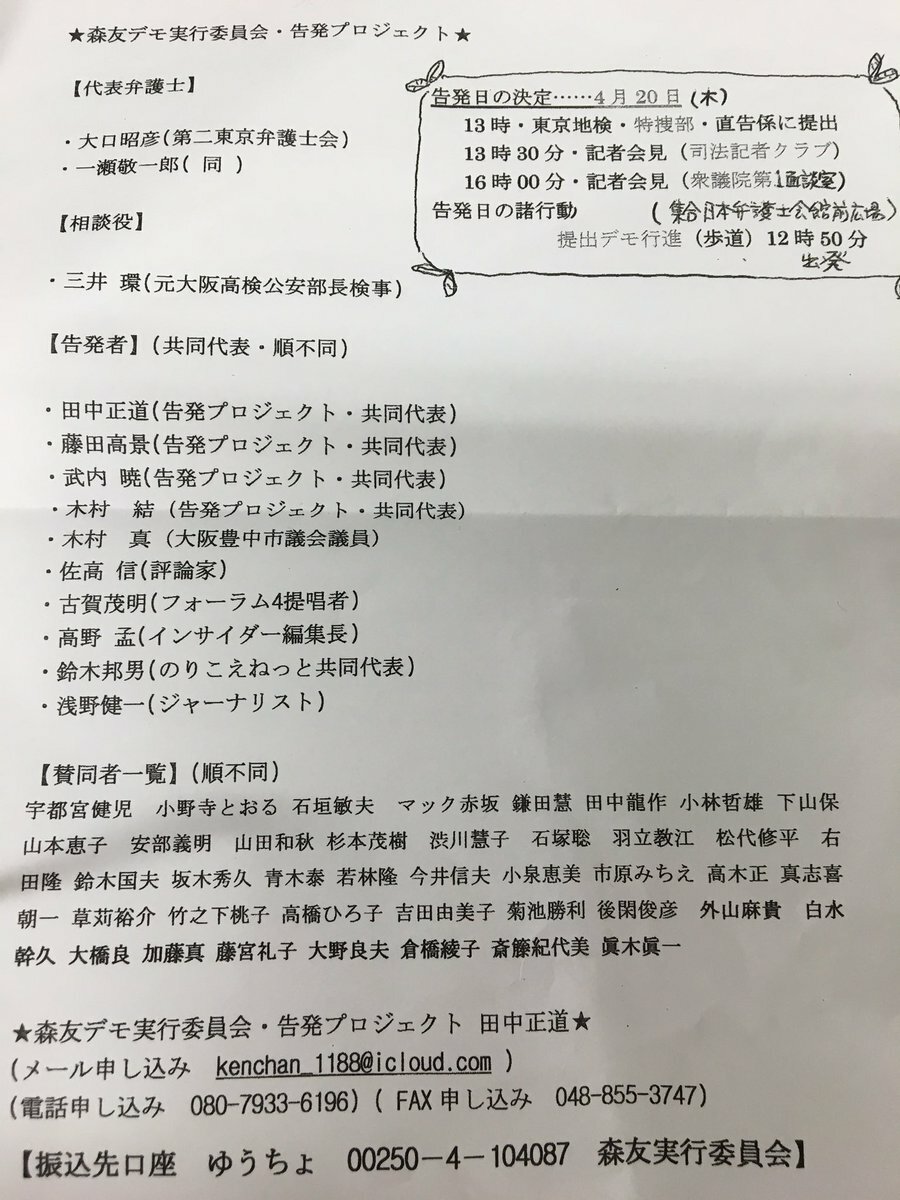 ★森友デモ実行委員会・告発プロジェクト★
【代表弁護士】
・大口昭彦(第二東京弁護士会)
・一瀬敬一郎( 同 )
【相談役】
・三井 環(元大阪高検公安部長検事)
告発日の決定……4月20日(木)
13時・東京地検・特捜部・直告係に提出
13時30分・記者会見（司法記者クラブ）
16時00分・記者会見（衆議院第1面談室）
告発日の諸行動 （集合日本弁護士会館前広場）
提出デモ行進（歩道）12時50分
出発
【告発者】(共同代表・順不同)
・田中正道(告発プロジェクト・共同代表)
・藤田高景(告発プロジェクト・共同代表)
・武内 暁(告発プロジェクト・共同代表)
・木村　結（告発プロジェクト・共同代表）
・木村　真（大阪豊中市議会議員）
・佐高 信(評論家)
・古賀茂明(フォーラム4提唱者)
・高野 孟(インサイダー編集長)
・鈴木邦男(のりこえねっと共同代表)
・浅野健一(ジャーナリスト)
【賛同者一覧】(順不同)
宇都宮健児　小野寺とおる 石垣敏夫　マック赤坂 鎌田慧 田中龍作 小林哲雄 下山保
山本恵子　安部義明　山田和秋 杉本茂樹　渋川慧子　石塚聡　羽立教江　松代修平　右
田隆 鈴木国夫 坂木秀久 青木泰 若林隆 今井信夫 小泉恵美 市原みちえ 高木正 真志喜
朝一 草苅裕介 竹之下桃子 高橋ひろ子 吉田由美子 菊池勝利 後閑俊彦　外山麻貴　白水
幹久 大橋良 加藤真 藤宮礼子 大野良夫 倉橋綾子 斎籐紀代美 眞木眞一
★森友デモ実行委員会・告発プロジェクト 田中正道★
(メール申し込み　kenchan_1188@icloud.com )
(電話申し込み　080-7933-6196) ( FAX申し込み　048-855-3747)
【振込先口座　ゆうちょ　00250－4－104087　森友実行委員会】